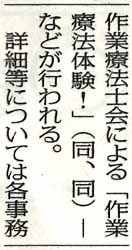 作業療法士会による「作業
療法体験！」（同、同）—
などが行われる。
詳細等については各事務